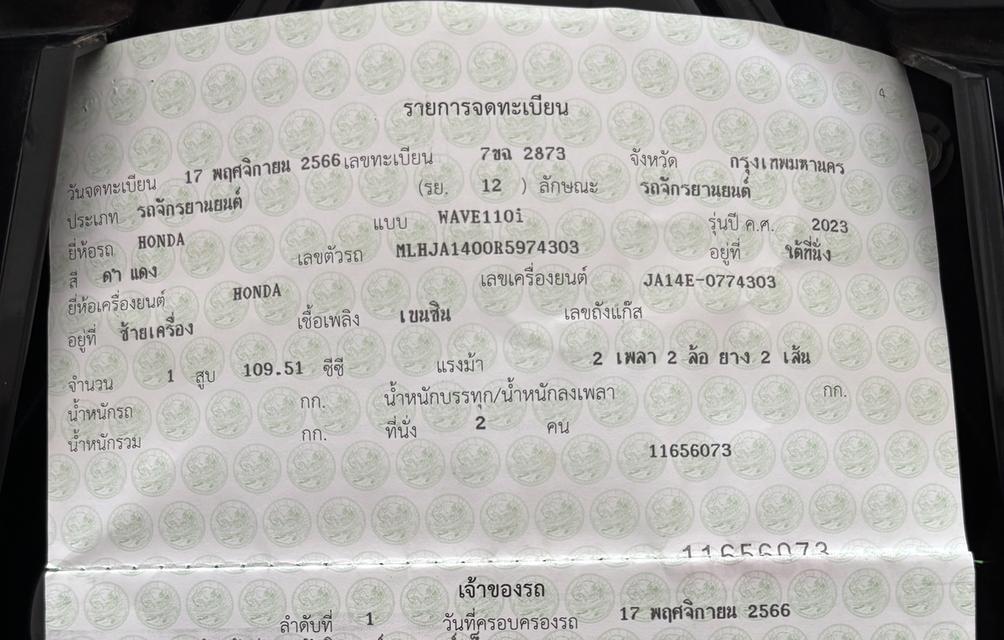 4
รายการจดทะเบียน
วันจดทะเบียน 17 พฤศจิกายน 2566 เลขทะเบียน 7ขฉ 2873 จังหวัด กรุงเทพมหานคร
ประเภท รถจักรยานยนต์ (รย. 12 ) ลักษณะ รถจักรยานยนต์
ยี่ห้อรถ HONDA แบบ WAVE110i รุ่นปี ค.ศ. 2023
สี ดำ แดง เลขตัวรถ MLHJA1400R5974303 อยู่ที่ ใต้ที่นั่ง
ยี่ห้อเครื่องยนต์ HONDA เลขเครื่องยนต์ JA14E-0774303
อยู่ที่ ซ้ายเครื่อง เชื้อเพลิง เบนซิน เลขถังแก๊ส
จำนวน 1 สูบ 109.51 ซีซี แรงม้า 2 เพลา 2 ล้อ ยาง 2 เส้น
น้ำหนักรถ กก. น้ำหนักบรรทุก/น้ำหนักลงเพลา กก.
น้ำหนักรวม กก. ที่นั่ง 2 คน
11656073
11656073
เจ้าของรถ
ลำดับที่ 1 วันที่ครอบครองรถ 17 พฤศจิกายน 2566